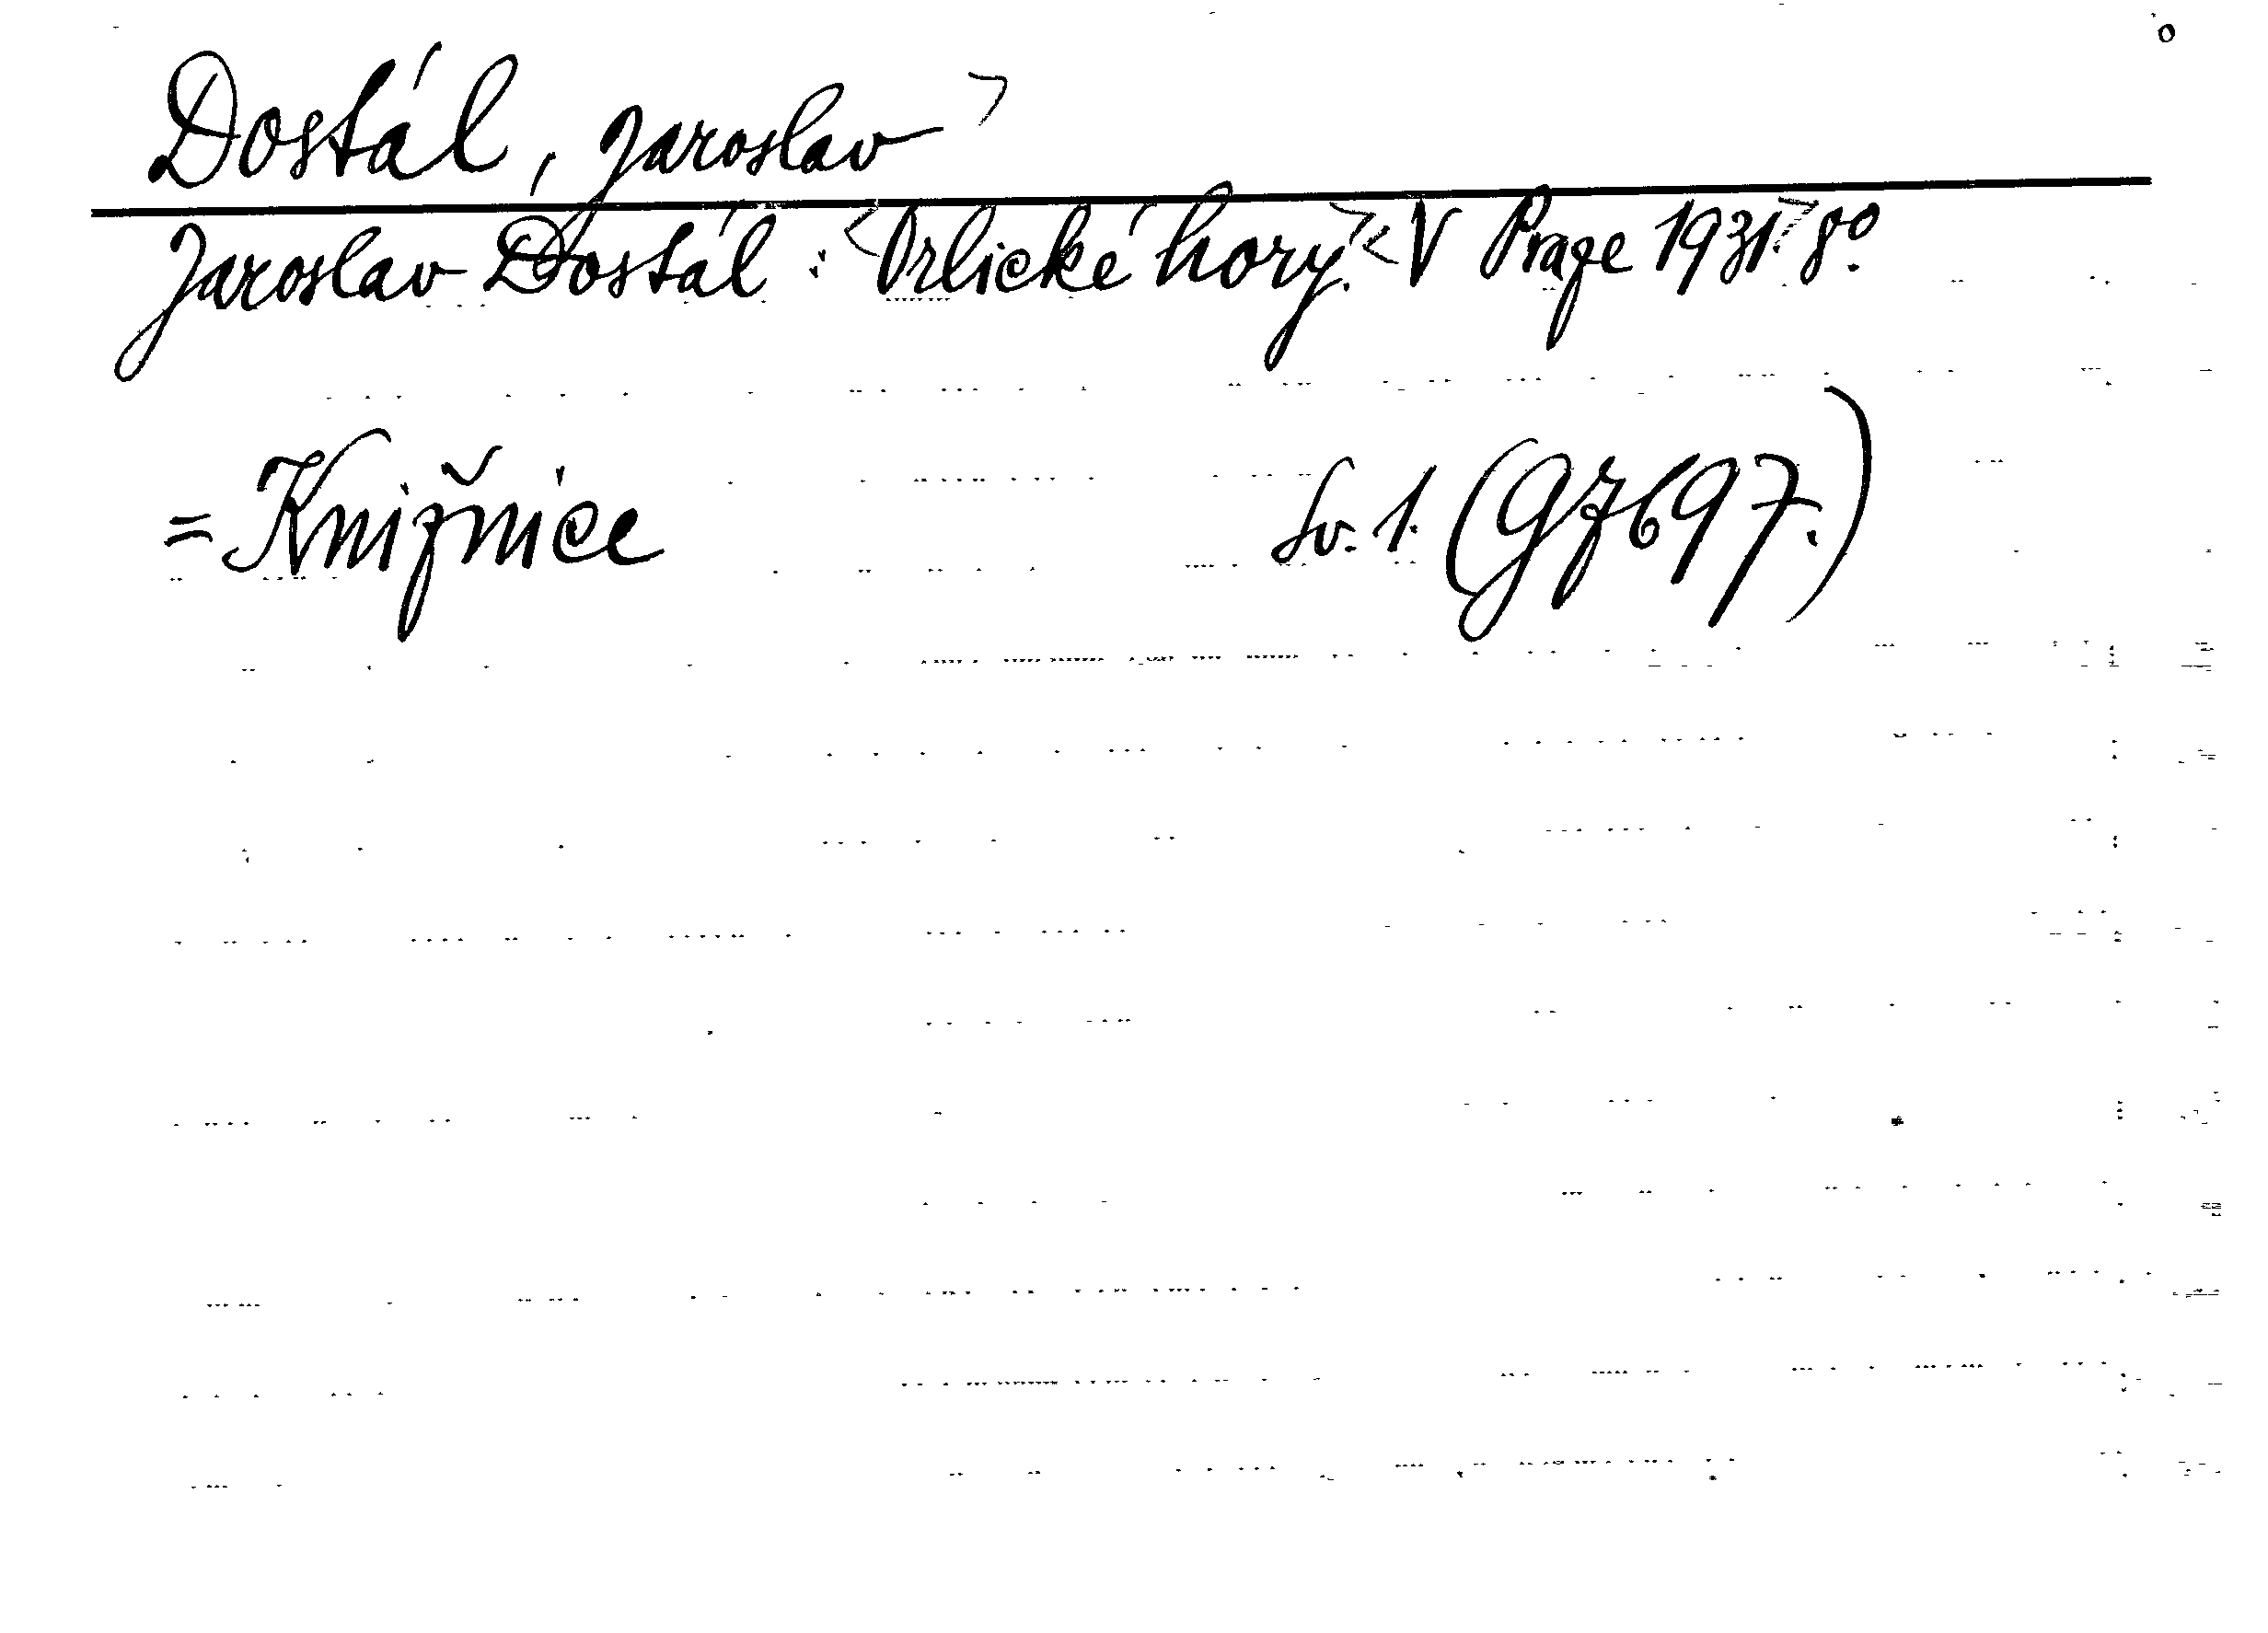 Dostál, Jaroslav>
Jaroslav Dostál: <Orlické hory.> <V Praze 1931.> 8°.
= Knižnice Sv. 1. (G7697.)